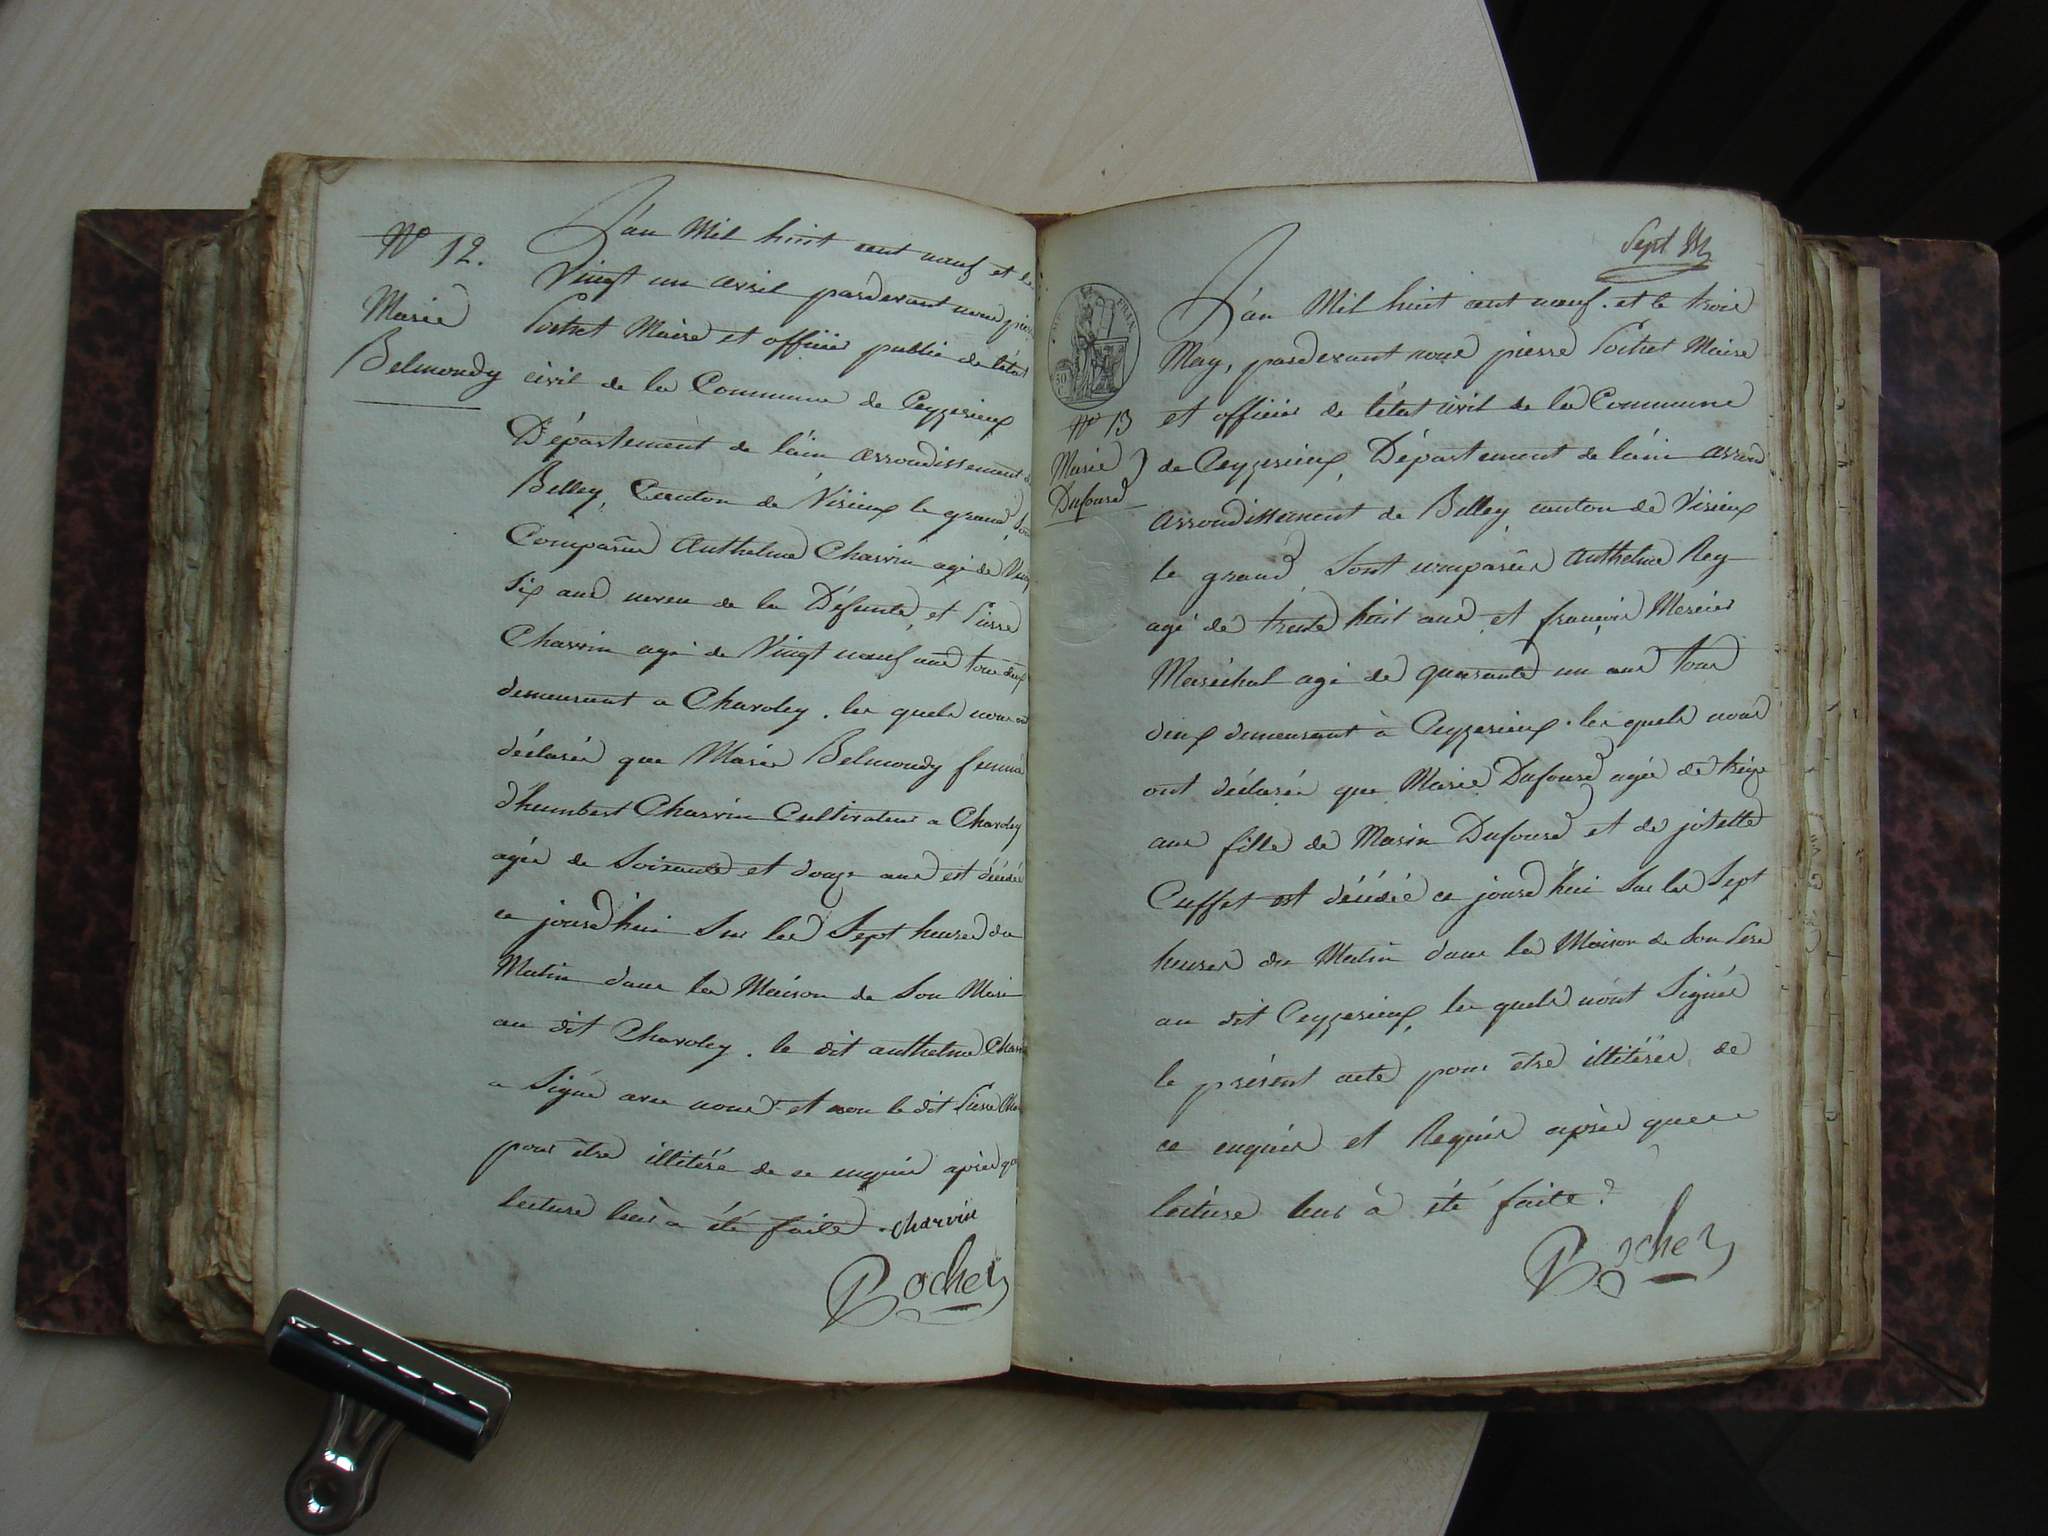 N° 12.
Marie
Belmondy
L'an Mil huit cent neuf et le
Vingt un avril pardevant nous
Maire et officier public de l'état
civil de la Commune de Ceyzerieux
Département de l'ain arrondissement
Belley, Canton de Virieux le grand, Sont
Comparûs Anthelme Charvin agé de
Six ans neveu de la Défunte, et Pierre
Charvin agé de Vingt neuf ans tous deux
demeurant a Chavoley. les quels nous ont
déclarés que Marie Belmondy femme
d'humbert Charvin Cultivateur a Chavoley
agée de Soixante et douze ans est décédée
ce jourd'hui Sur les Sept heures du
Matin dans la Maison de Son Mari
au dit Chavoley. le dit anthelme Charvin
a Signé avec nous et non le dit Pierre
pour être illitéré de ce enquis après que
lecture leur a été faite. charvin
Sept
N° 13
Marie
Dufourd
L'an Mil huit cent neuf. et le trois
May, pardevant nous pierre Maire
et officier de l'état civil de la Commune
de Ceyzerieux, Département de l'ain arron
arrondissement de Belley canton de Virieux
le grand, Sont comparûs Anthelme Rey
agé de trente huit ans et françois Mercier
Maréchal agé de quarante un ans tous
deux demeurant à Ceyzerieux. les quels nous
ont déclarés que Marie Dufourd agée de treize
ans fille de Marin Dufourd et de josette
Cuffet est décédée ce jourd'hui Sur les Sept
heures du Matin dans la Maison de Son Pere
au dit Ceyzerieux, les quels n'ont Signés
le présent acte pour être illitérés de
ce enquis et Requis après que
lecture leur à été faite.